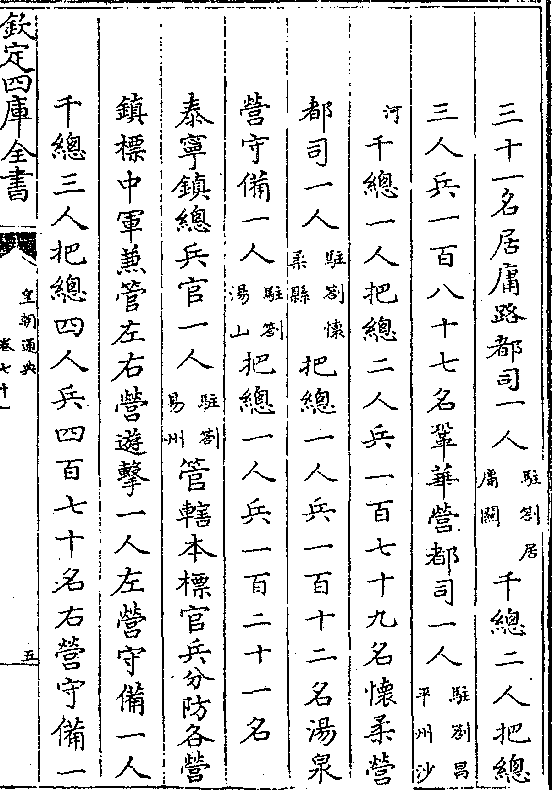 三十一名居庸路都司一人駐劄居庸關千總二人把總
三人兵一百八十七名鞏華營都司一人駐劄昌平州沙
河千總一人把總二人兵一百七十九名懷柔營
都司一人駐劄懷柔縣把總一人兵一百十二名湯泉
營守備一人駐劄湯山把總一人兵一百二十一名
泰寧鎮總兵官一人駐劄易州管轄本標官兵分防各營
鎮標中軍兼管左右營遊擊一人左營守備一人
千總三人把總四人兵四百七十名右營守備一
欽定四庫全書
皇朝通典
卷七十一
五